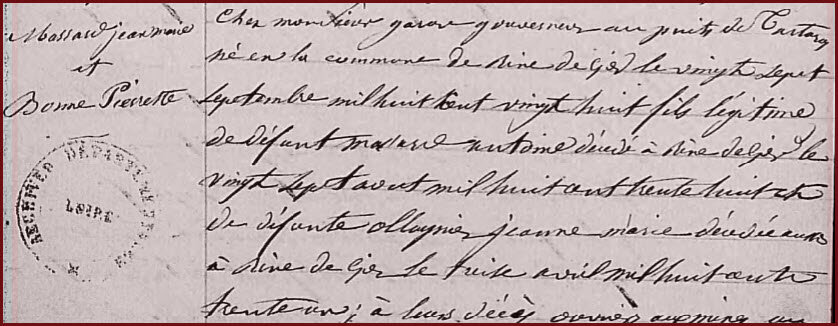 Massard jean marie
et
Bonne Pierrette
ARCHIVES DÉPARTEMENTALES
LOIRE
Chez monsieur gouverneur au puits de
né en la commune de Rive de Gier le vingt sept
septembre mil huit cent vingt huit fils légitime
de défunt Massard antoine décédé à Rive de Gier le
vingt sept aout mil huit cent trente huit et
de défunte ollagnier jeanne marie décédée aussi
à Rive de Gier le treize avril mil huit cent
trente un ; à leurs décès ouvrier aux mines